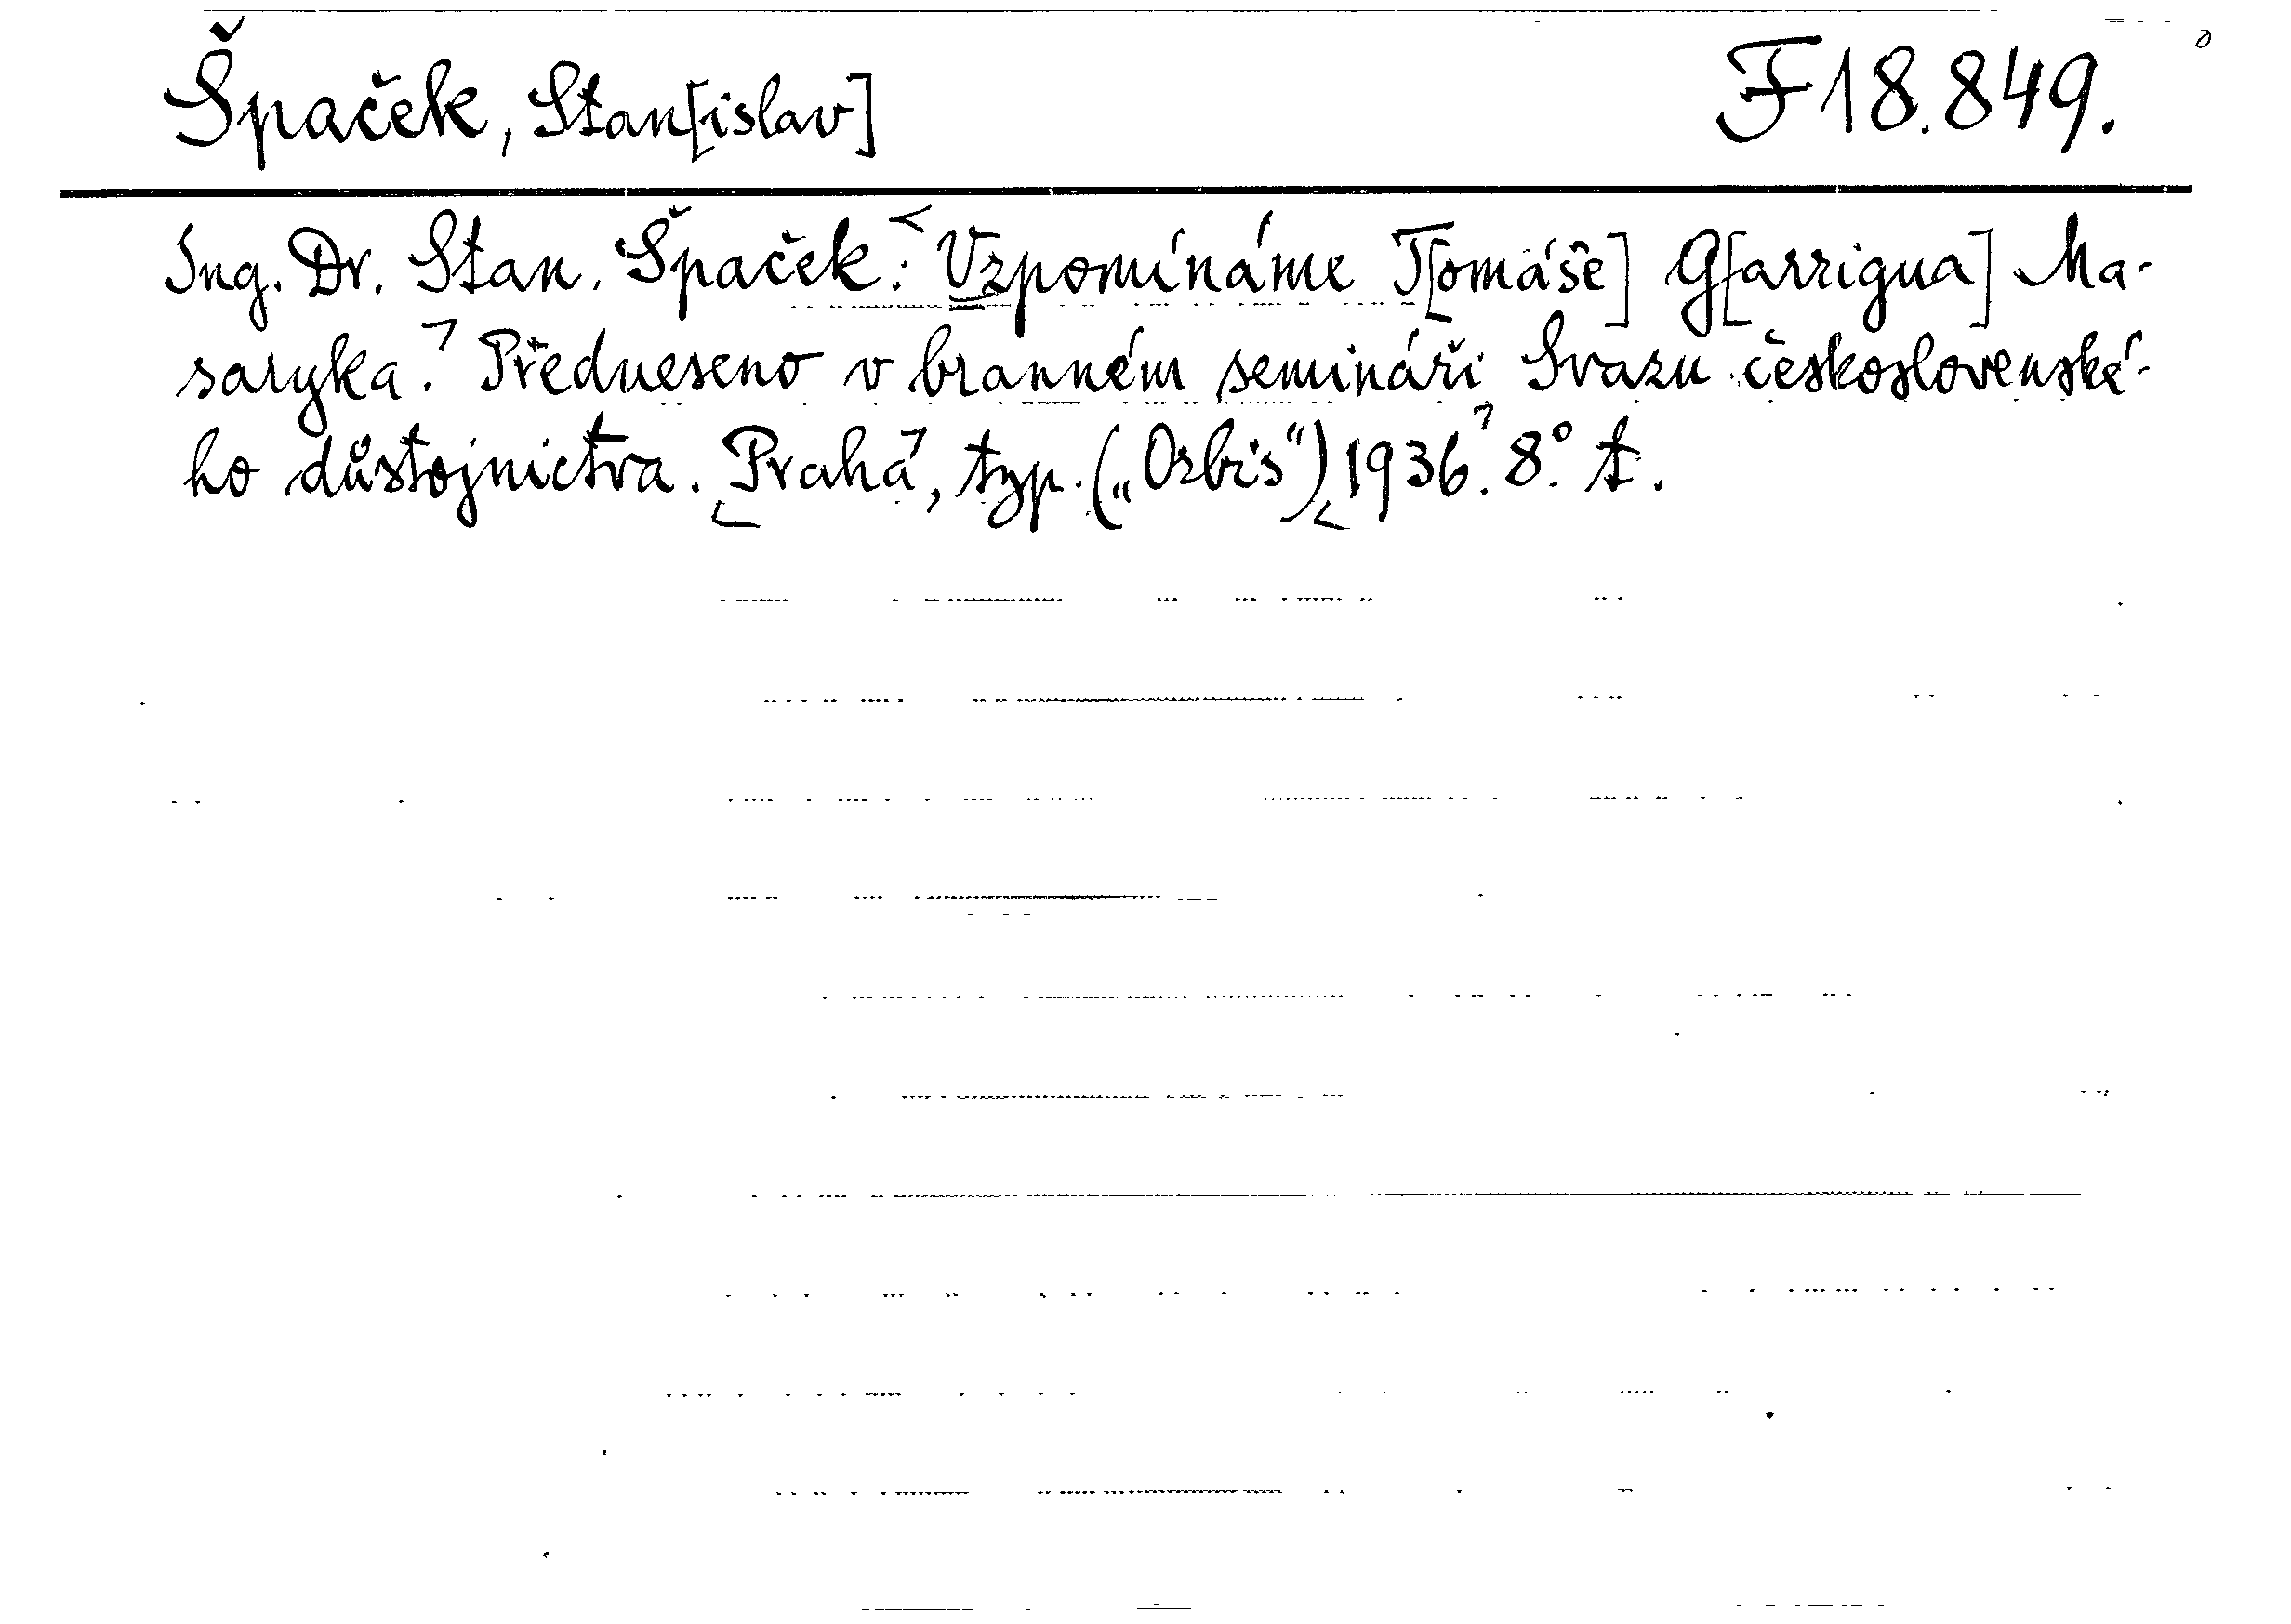 Špaček, Stan[islav] F 18.849.
Ing. Dr. Stan. Špaček: Vzpomínáme T[omáše] G[arrigua] Ma-
saryka. Předneseno v branném semináři Svazu československé-
ho důstojnictva. Praha, typ. („Orbis“) 1936. 8° t.